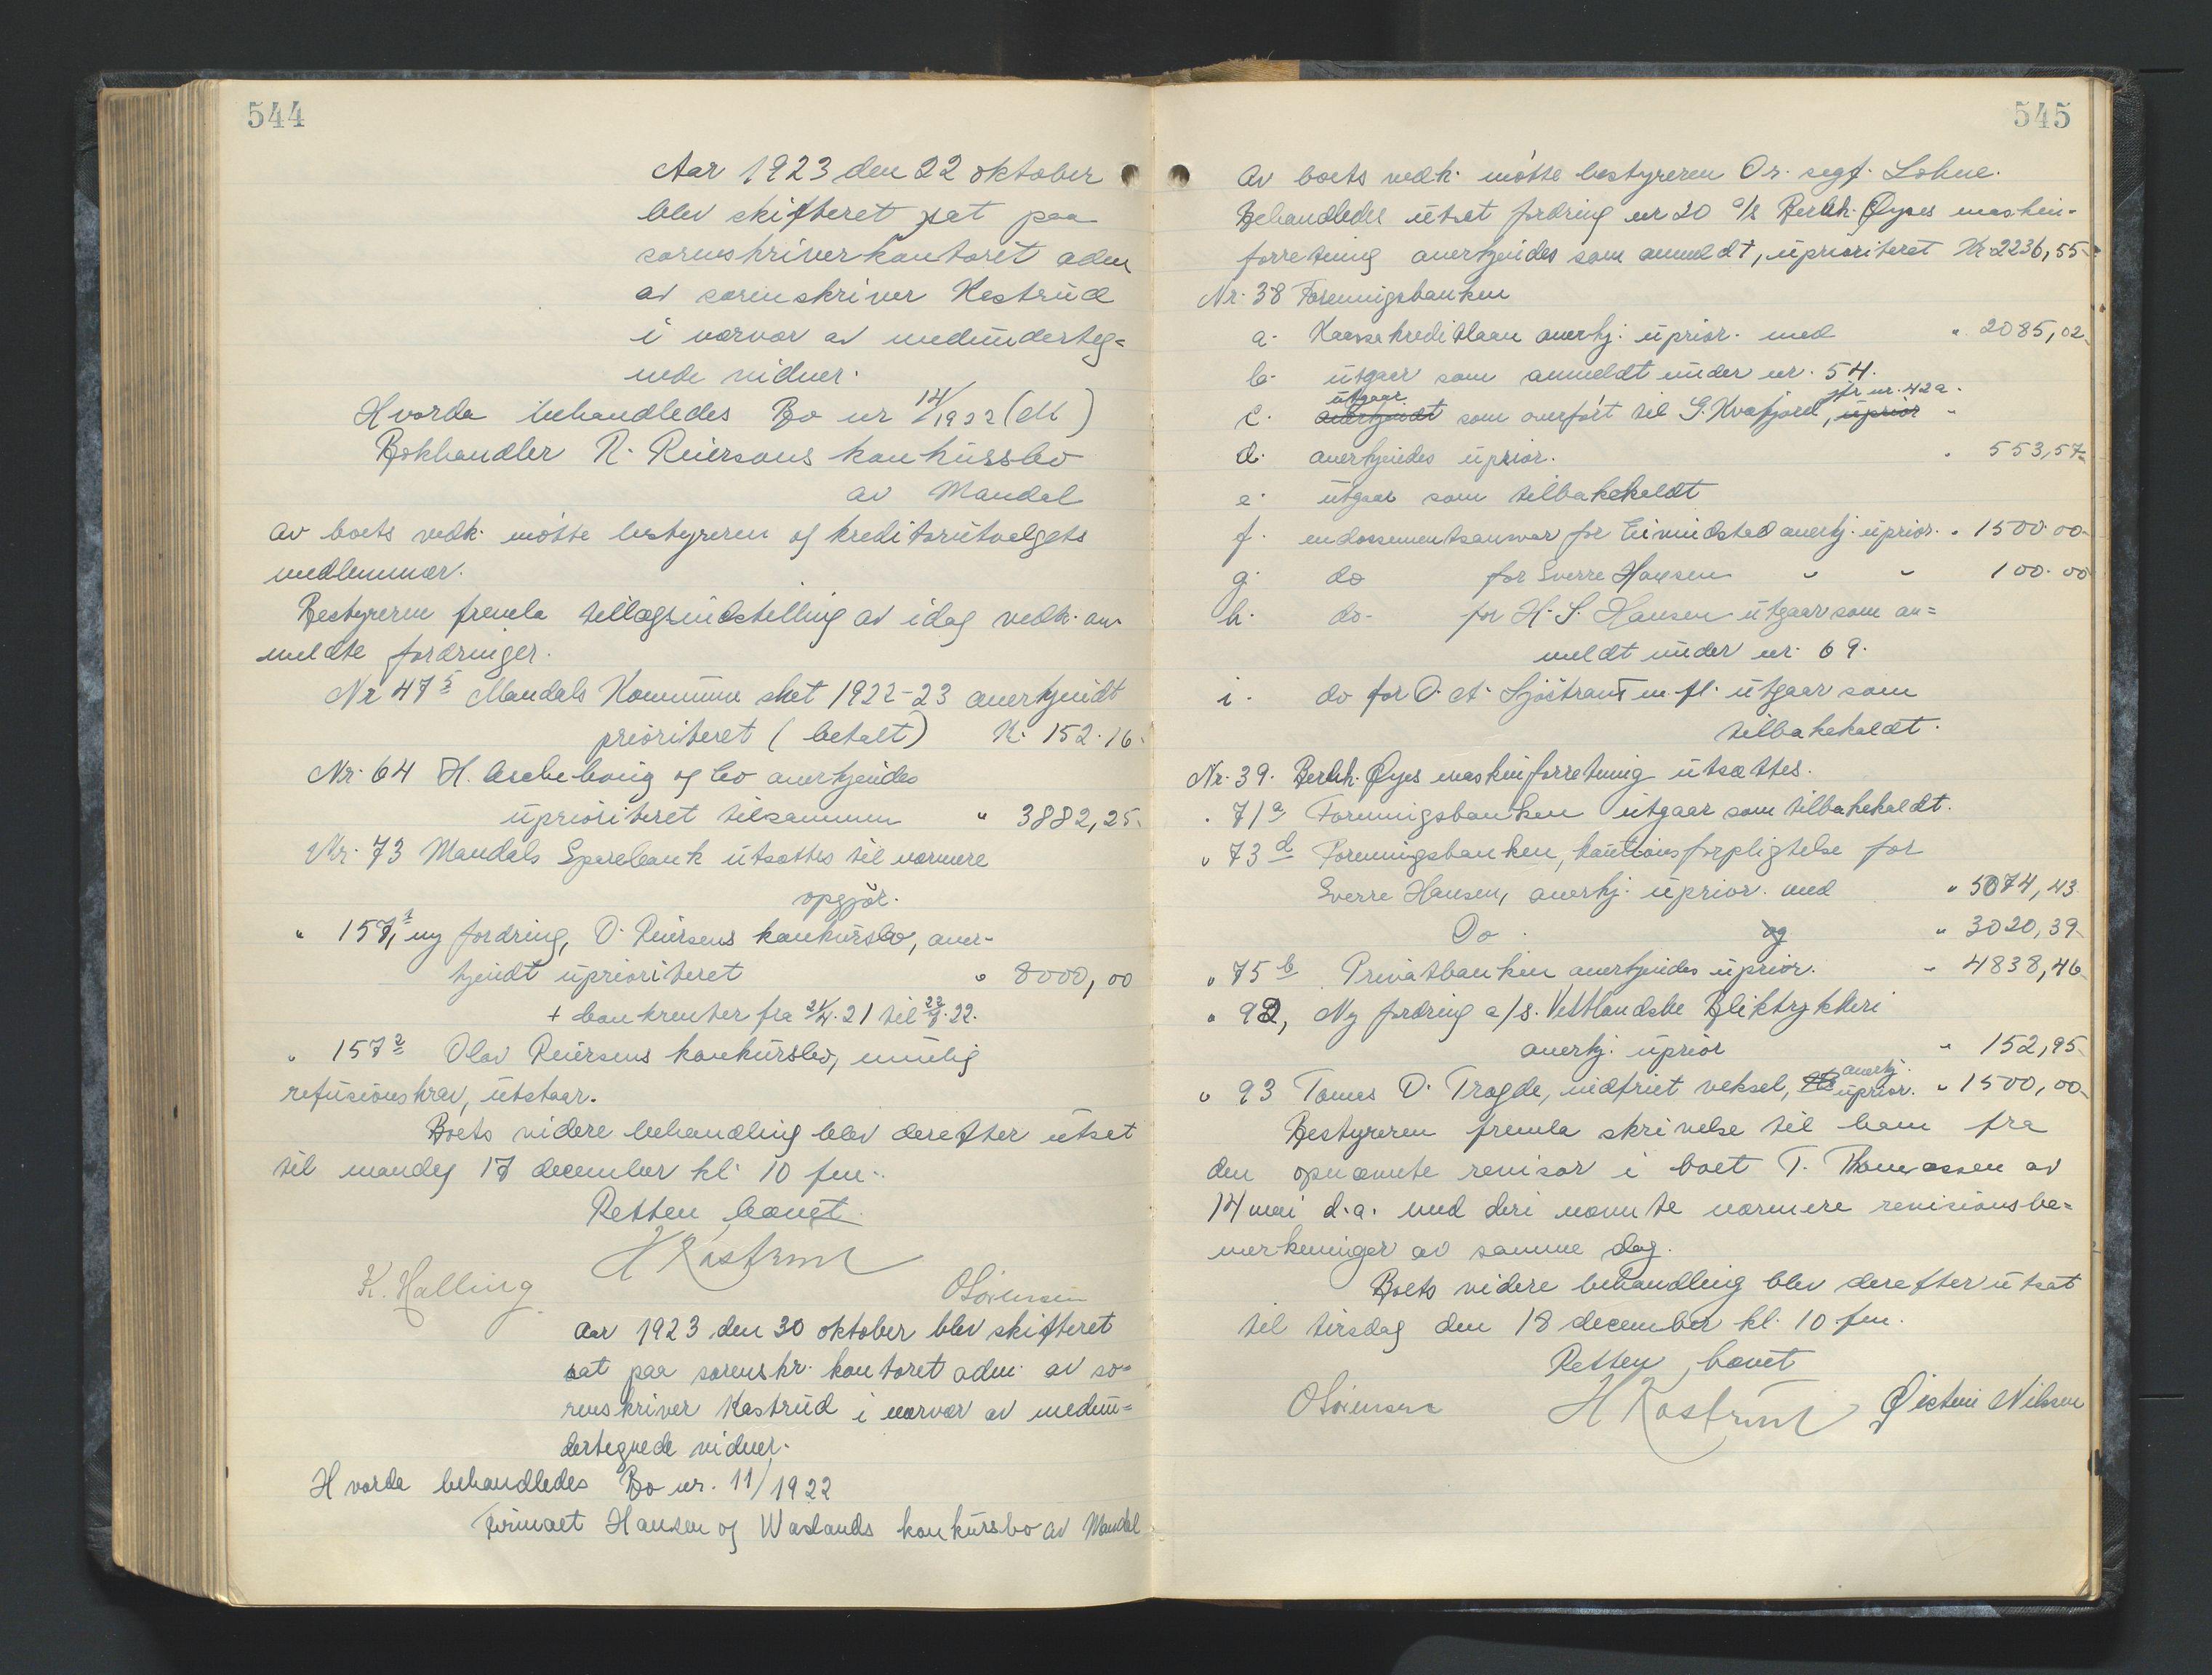 544
Aar 1923 den 22 oktober
blev skifteret sat paa
sorenskriverkontoret adm
av sorenskriver Kastrud
i nærvær av medunderteg=
nede vidner.
Hvorda behandledes Bo nr 14/1922 (M)
Bokhandler R. Reiersens konkursbo
av Mandal
Av boets vedk. møtte bestyreren og kreditorutvalgets
medlemmer.
Bestyreren fremla tillægsindstilling av idag vedk. an-
meldte fordringer.
Nr 47 5 Mandals Kommune skat 1922-23 anerkjendt
prioriteret (betalt) K. 152.16.
Nr. 64 H. Aschehoug og Co anerkjendes
uprioriteret tilsammen " 3882,25.
Nr. 73 Mandals Sparebank utsættes til nærmere
opgjør.
" 157,1 ny fordring, O. Reiersens konkursbo, aner-
kjendt uprioriteret " 8000,00
+ bankrenter fra 21/4.21 til 22/8.22.
" 157 2 Olav Reiersens konkursbo, mulig
refusionskrav, utstaar.
Boets videre behandling blev derefter utsat
til mandag 17 december kl. 10 fm.
Retten hævet.
H Kastrud
K. Halling OSörensen
Aar 1923 den 30 oktober blev skifteret
sat paa sorenskr. kontoret adm. av so=
renskriver Kastrud i nærvær av medun=
dertegnede vidner.
Hvorda behandledes Bo nr. 11/1922
Firmaet Hansen og Waslands konkursbo av Mandal
545
Av boets vedk. møtte bestyreren O.r. sagf. Lohne.
Behandledes utsat fordring nr 20 a/s Berhh. Øyes maskin-
forretning anerkjendes som anmeldt, uprioriteret Kr 2236,55
Nr. 38 Foreningsbanken
a. Kassekreditlaan anerkj. uprior. med " 2085,02
b. utgaar som anmeldt under nr. 54.
utgaar jfr nr. 42a.
c. anerkjendt som overført til G. Kvafjord, uprior "
d. anerkjendes uprior. " 553,57
e. utgaar som tilbakekaldt
f. endossementsansvar for Eimindstad anerkj. uprior. " 1500.00
g. do for Sverre Hansen " " 100.00
h. do. for H. S. Hansen utgaar som an=
meldt under nr. 69.
i. do for O. A. Sjöstrant m. fl. utgaar som
tilbakekaldt.
Nr. 39. Berhh. Øyes maskinforretning utsættes.
" 71 a Foreningsbanken utgaar som tilbakekaldt.
" 73 d Foreningsbanken, kautionsforpligtelse for
Sverre Hansen, anerkj. uprior. med " 5074,43
Do. og " 3020,39
" 75 b Privatbanken anerkjendes uprior. " 4838,46
" 92, Ny fordring a/s. Vestlandske Bliktrykkeri
anerkj. uprior " 152,95
anerkj.
" 93 Tomas O. Tregde, vidtfriet veksel, uprior. " 1500,00
Bestyreren fremla skrivelse til ham fra
den opnævnte revisor i boet T. Thomassen av
14 mai d.a. med deri nævnte nærmere revisionsbe=
merkninger av samme dag.
Boets videre behandling blev derefter utsat
til tirsdag den 18 december kl. 10 fm.
Retten hævet
OSörensen H Kastrud Øistein Nilssen